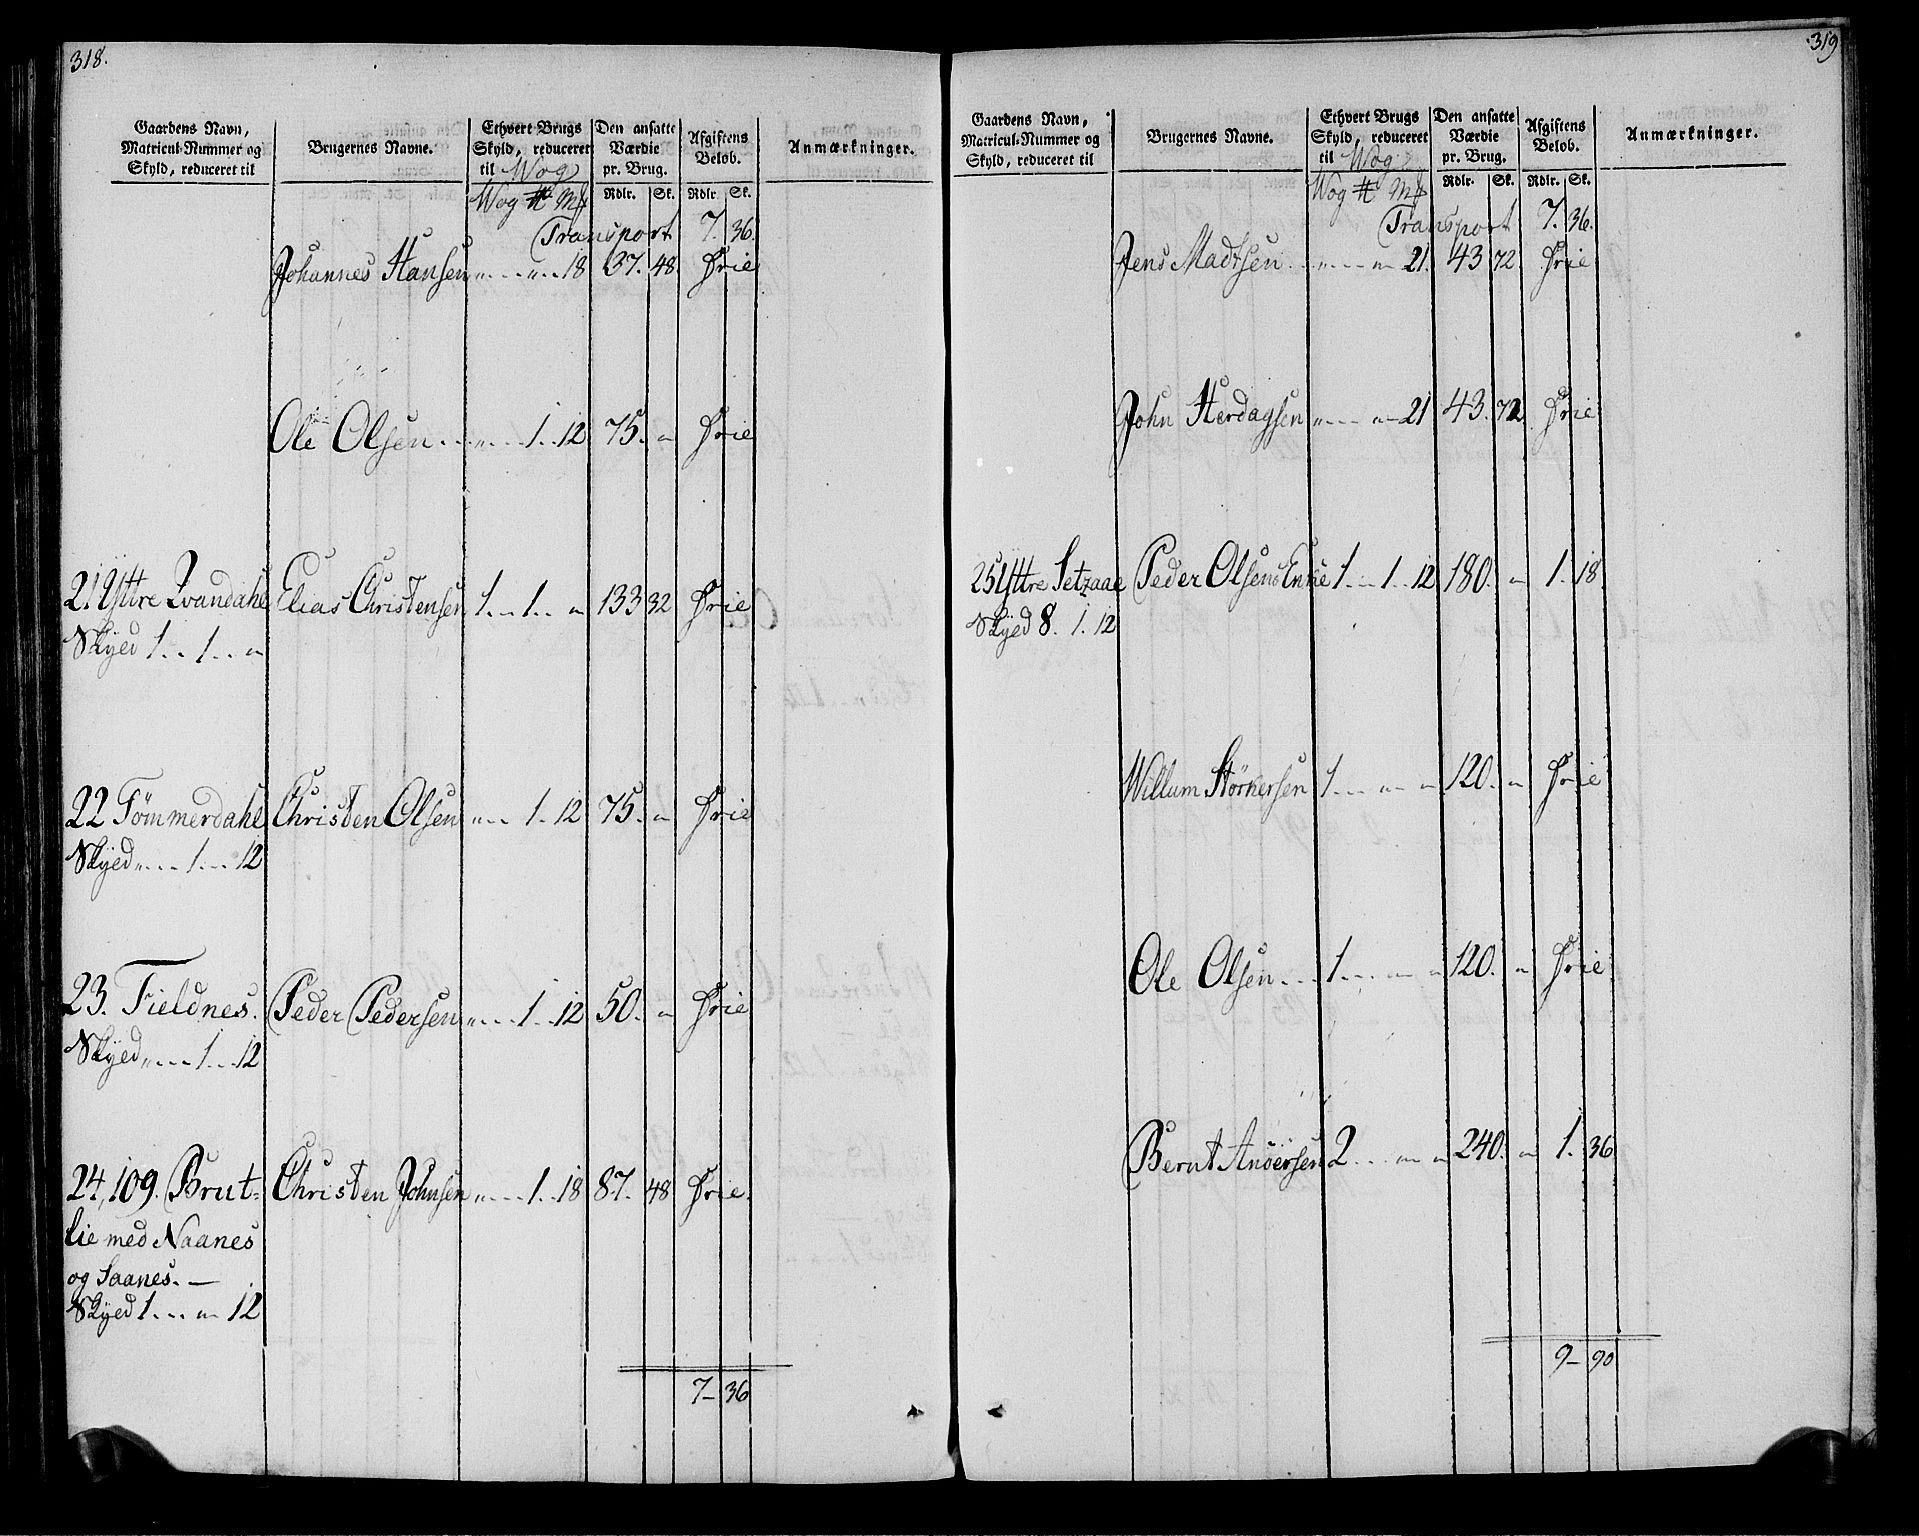 318.
Gaardens Navn, Matricul-Nummer og Skyld, reduceret til | Brugernes Navne. | Ethvert Brugs Skyld, reduceret til Wog | Den ansatte Værdie pr. Brug. | Afgiftens Beløb. | Anmærkninger.
Wog ℔ Mk | Rdlr. | Sk. | Rdlr. | Sk.
Transport 7. 36.
Johannes Hansen „ „ 18 37. 48. Frie
Ole Olsen „ 1 12 75. „ Frie
21. Yttre Qvandahl Elias Christensen 1 1 „ 133 32 Frie
Skyed 1 1 „
22 Tömmerdahl Christen Olsen „ 1 12 75. „ Frie
Skyed „ 1 12
23. Fieldnes. Peder Pedersen „ 1 12 50. „ Frie
Skyed „ 1 12
24, 109. Brut- Christen Johnsen „ 1 18 87. 48 Frie.
lie med Naanes
og Saanes. —
Skyed 1 „ 12
7 – 36
319
Gaardens Navn, Matricul-Nummer og Skyld, reduceret til | Brugernes Navne. | Ethvert Brugs Skyld, reduceret til Wog | Den ansatte Værdie pr. Brug. | Afgiftens Beløb. | Anmærkninger.
Wog ℔ Mk | Rdlr. | Sk. | Rdlr. | Sk.
Transport 7. 36.
Jens Madtsen „ „ 21. 43 72 Frie
John Herdagsen „ „ 21 43. 72 Frie
25 Yttre Setzaae Peder Olsens Enke 1 1 12 180. „ 1. 18
Skyed 8. 1. 12
Willum Störkersen 1 „ „ 120. „ Frie
Ole Olsen 1 „ „ 120. „ Frie
Bernt Andersen 2 „ „ 240. „ 1. 36
9 – 90